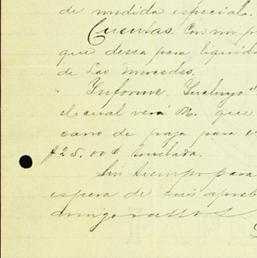 de medida especial.
Cuentas. Con mi p
que desea para liquida
de Las Mercedes.
Informe. Incluyo
el cual verá M. que
carro de paja para e
$25.00 tonelada.
Sin tiempo para
espera de sus apre